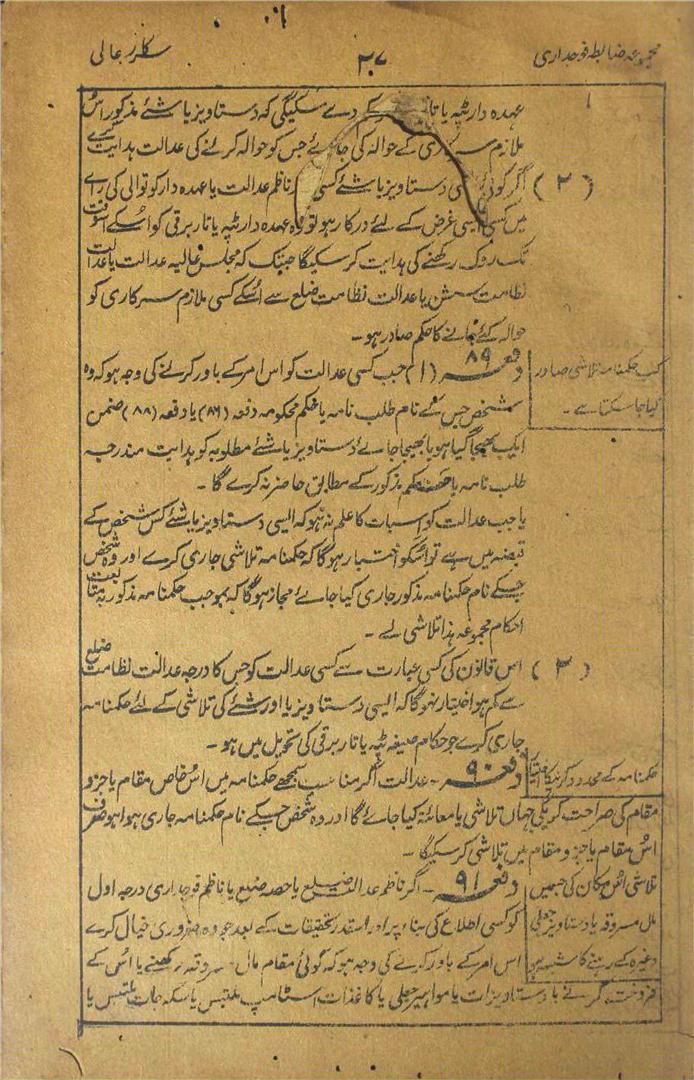 مجموعہ ضابطہ فوجداری
۲۷
سرکار عالی
عہدہ دار ٹپہ یا تار کے دے سکیگی کہ دستاویز یا شئے مذکور اُس
ملازم سرکاری کے حوالہ کی جائے جس کو حوالہ کرنے کی عدالت ہدایت کرے
(۲) اگر کوئی دستاویز یا شئے کسی ناظم عدالت یا عہدہ دار کوتوالی کی رائے
میں کسی ایسی غرض کے لئے درکار ہو تو وہ عہدہ دار ٹپہ یا تار برقی کو اُسکے اسوقت
تک روک رکھنے کی ہدایت کرسکیگا جبتک کہ مجلس عالیہ عدالت یا عدالت
نظامت سشن یا عدالت نظامت ضلع سے اُسکے کسی ملازم سرکاری کو
حوالہ کئے جانے کا حکم صادر ہو۔
کب حکمنامہ تلاشی صادر
کیا جاسکتا ہے۔
دفعہ ۸۹ (۱) جب کسی عدالت کو اس امر کے باور کرنے کی وجہ ہو کہ وہ
شخص جس کے نام طلب نامہ یا حکم محکومہ دفعہ (۸۶) یا دفعہ (۸۸) ضمن
ایک بھیجا گیا ہو یا بھیجا جائے دستاویز یا شئے مطلوبہ کو ہدایت مندرجہ
طلب نامہ یا حکم مذکور کے مطابق حاضر نہ کرے گا۔
یا جب عدالت کو اسبات کا علم نہ ہو کہ ایسی دستاویز یا شئے کس شخص کے
قبضہ میں ہے تو اُسکو اختیار ہوگا کہ حکمنامہ تلاشی جاری کرے اور وہ شخص
جسکے نام حکمنامہ مذکور جاری کیا جائے مجاز ہوگا کہ بموجب حکمنامہ مذکور بمتابعت
احکام مجموعہ ہذا تلاشی لے۔
(۳) اس قانون کی کسی عبارت سے کسی عدالت کو جس کا درجہ عدالت نظامت ضلع
سے کم ہو اختیار نہوگا کہ ایسی دستاویز یا اور شئے کی تلاشی کے لئے حکمنامہ
جاری کرے جو حکام صیغہ ٹپہ یا تار برقی کی تحویل میں ہو۔
حکمنامہ کے محدود کرنیکا اختیار
دفعہ ۹۰۔ عدالت اگر مناسب سمجھے حکمنامہ میں اُس خاص مقام یا جزو
مقام کی صراحت کریگی جہاں تلاشی یا معائنہ کیا جائے گا اور وہ شخص جسکے نام حکمنامہ جاری ہوا ہو صرف
اُس مقام یا جزو مقام میں تلاشی کرسکیگا۔
تلاشی اُس مکان کی جسمیں
مال مسروقہ یا دستاویز جعلی
وغیرہ کے رہنے کا شبہہ ہو
دفعہ ۹۱۔ اگر ناظم عدالت ضلع یا حصہ ضلع یا ناظم فوجداری درجہ اول
کو کسی اطلاع کی بناء پر اور اسقدر تحقیقات کے بعد جو وہ ضروری خیال کرے
اس امر کے باور کرنے کی وجہ ہو کہ کوئی مقام مال مسروقہ رکھنے یا اُس کے
فروخت کرنے یا دستاویزات یا مواہیر جعلی یا کاغذات اسٹامپ ملتبس یا سکہ جات ملتبس یا